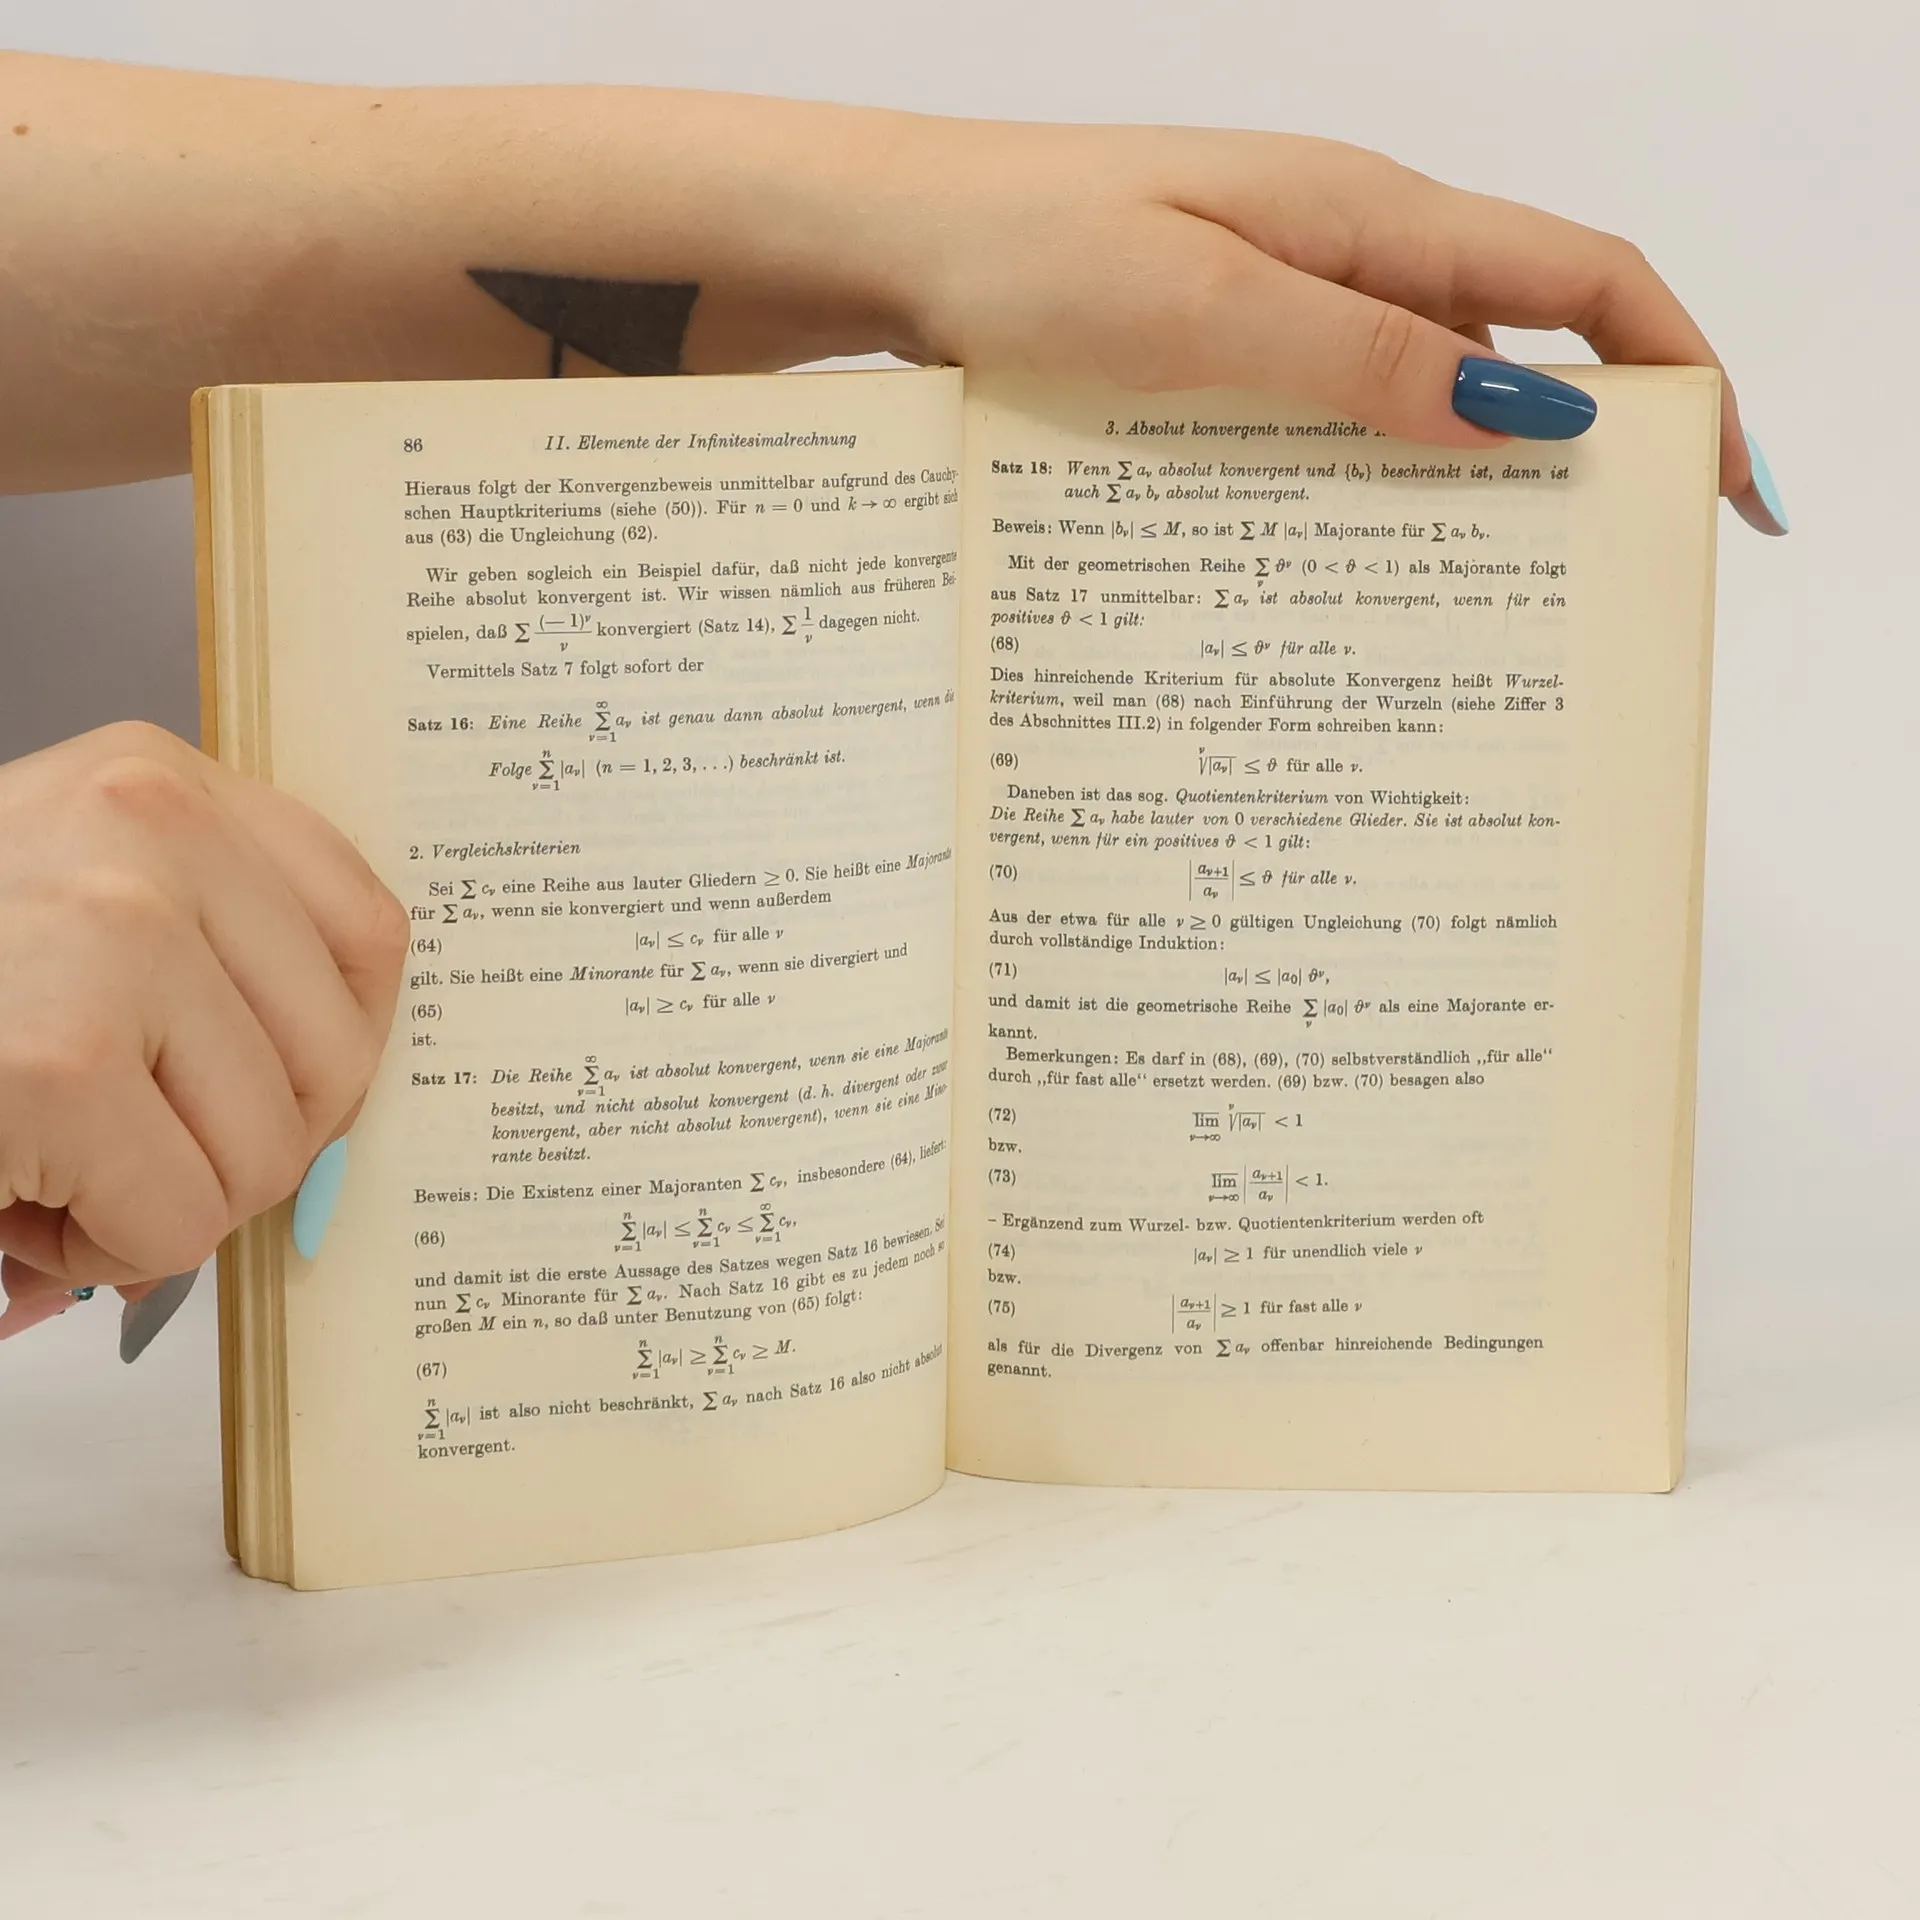 86 II. Elemente der Infinitesimalrechnung
Hieraus folgt der Konvergenzbeweis unmittelbar aufgrund des Cauchy-
schen Hauptkriteriums (siehe (50)). Für n = 0 und k → ∞ ergibt sich
aus (63) die Ungleichung (62).
Wir geben sogleich ein Beispiel dafür, daß nicht jede konvergente
Reihe absolut konvergent ist. Wir wissen nämlich aus früheren Bei-
spielen, daß ∑ (— 1)^ν / ν konvergiert (Satz 14), ∑ 1/ν dagegen nicht.
Vermittels Satz 7 folgt sofort der
Satz 16: Eine Reihe ∑_{ν=1}^{∞} a_ν ist genau dann absolut konvergent, wenn die
Folge ∑_{ν=1}^{n} |a_ν| (n = 1, 2, 3, . . .) beschränkt ist.
2. Vergleichskriterien
Sei ∑ c_ν eine Reihe aus lauter Gliedern ≥ 0. Sie heißt eine Majorante
für ∑ a_ν, wenn sie konvergiert und wenn außerdem
(64) |a_ν| ≤ c_ν für alle ν
gilt. Sie heißt eine Minorante für ∑ a_ν, wenn sie divergiert und
(65) |a_ν| ≥ c_ν für alle ν
ist.
Satz 17: Die Reihe ∑_{ν=1}^{∞} a_ν ist absolut konvergent, wenn sie eine Majorante
besitzt, und nicht absolut konvergent (d. h. divergent oder zwar
konvergent, aber nicht absolut konvergent), wenn sie eine Mino-
rante besitzt.
Beweis: Die Existenz einer Majoranten ∑ c_ν, insbesondere (64), liefert:
(66) ∑_{ν=1}^{n} |a_ν| ≤ ∑_{ν=1}^{n} c_ν ≤ ∑_{ν=1}^{∞} c_ν,
und damit ist die erste Aussage des Satzes wegen Satz 16 bewiesen. Sei
nun ∑ c_ν Minorante für ∑ a_ν. Nach Satz 16 gibt es zu jedem noch so
großen M ein n, so daß unter Benutzung von (65) folgt:
(67) ∑_{ν=1}^{n} |a_ν| ≥ ∑_{ν=1}^{n} c_ν ≥ M.
∑_{ν=1}^{n} |a_ν| ist also nicht beschränkt, ∑ a_ν nach Satz 16 also nicht absolut
konvergent.
3. Absolut konvergente unendliche
Satz 18: Wenn ∑ a_ν absolut konvergent und {b_ν} beschränkt ist, dann ist
auch ∑ a_ν b_ν absolut konvergent.
Beweis: Wenn |b_ν| ≤ M, so ist ∑ M |a_ν| Majorante für ∑ a_ν b_ν.
Mit der geometrischen Reihe ∑_ν ϑ^ν (0 < ϑ < 1) als Majorante folgt
aus Satz 17 unmittelbar: ∑ a_ν ist absolut konvergent, wenn für ein
positives ϑ < 1 gilt:
(68) |a_ν| ≤ ϑ^ν für alle ν.
Dies hinreichende Kriterium für absolute Konvergenz heißt Wurzel-
kriterium, weil man (68) nach Einführung der Wurzeln (siehe Ziffer 3
des Abschnittes III.2) in folgender Form schreiben kann:
(69) ^ν√|a_ν| ≤ ϑ für alle ν.
Daneben ist das sog. Quotientenkriterium von Wichtigkeit:
Die Reihe ∑ a_ν habe lauter von 0 verschiedene Glieder. Sie ist absolut kon-
vergent, wenn für ein positives ϑ < 1 gilt:
(70) |a_{ν+1} / a_ν| ≤ ϑ für alle ν.
Aus der etwa für alle ν ≥ 0 gültigen Ungleichung (70) folgt nämlich
durch vollständige Induktion:
(71) |a_ν| ≤ |a_0| ϑ^ν,
und damit ist die geometrische Reihe ∑_ν |a_0| ϑ^ν als eine Majorante er-
kannt.
Bemerkungen: Es darf in (68), (69), (70) selbstverständlich „für alle“
durch „für fast alle“ ersetzt werden. (69) bzw. (70) besagen also
(72) \overline{lim}_{ν→∞} ^ν√|a_ν| < 1
bzw.
(73) \overline{lim}_{ν→∞} |a_{ν+1} / a_ν| < 1.
– Ergänzend zum Wurzel- bzw. Quotientenkriterium werden oft
(74) |a_ν| ≥ 1 für unendlich viele ν
bzw.
(75) |a_{ν+1} / a_ν| ≥ 1 für fast alle ν
als für die Divergenz von ∑ a_ν offenbar hinreichende Bedingungen
genannt.